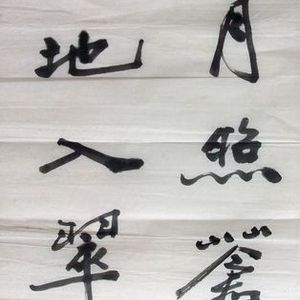 月照
地入翠